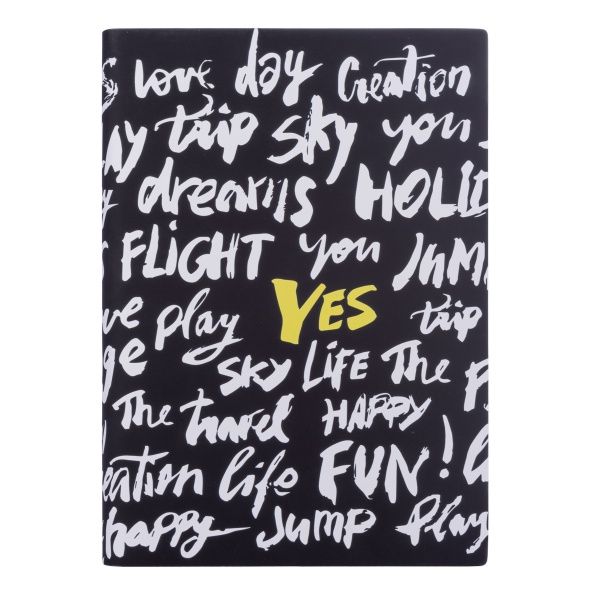 s love day Creation
AY trip sky you
y dreams HOLID
FLIGHT you JUMP
ve play YES trip
ge SKY LIFE The P
The travel HAPPY
eation life FUN! li
happy JUMP Play